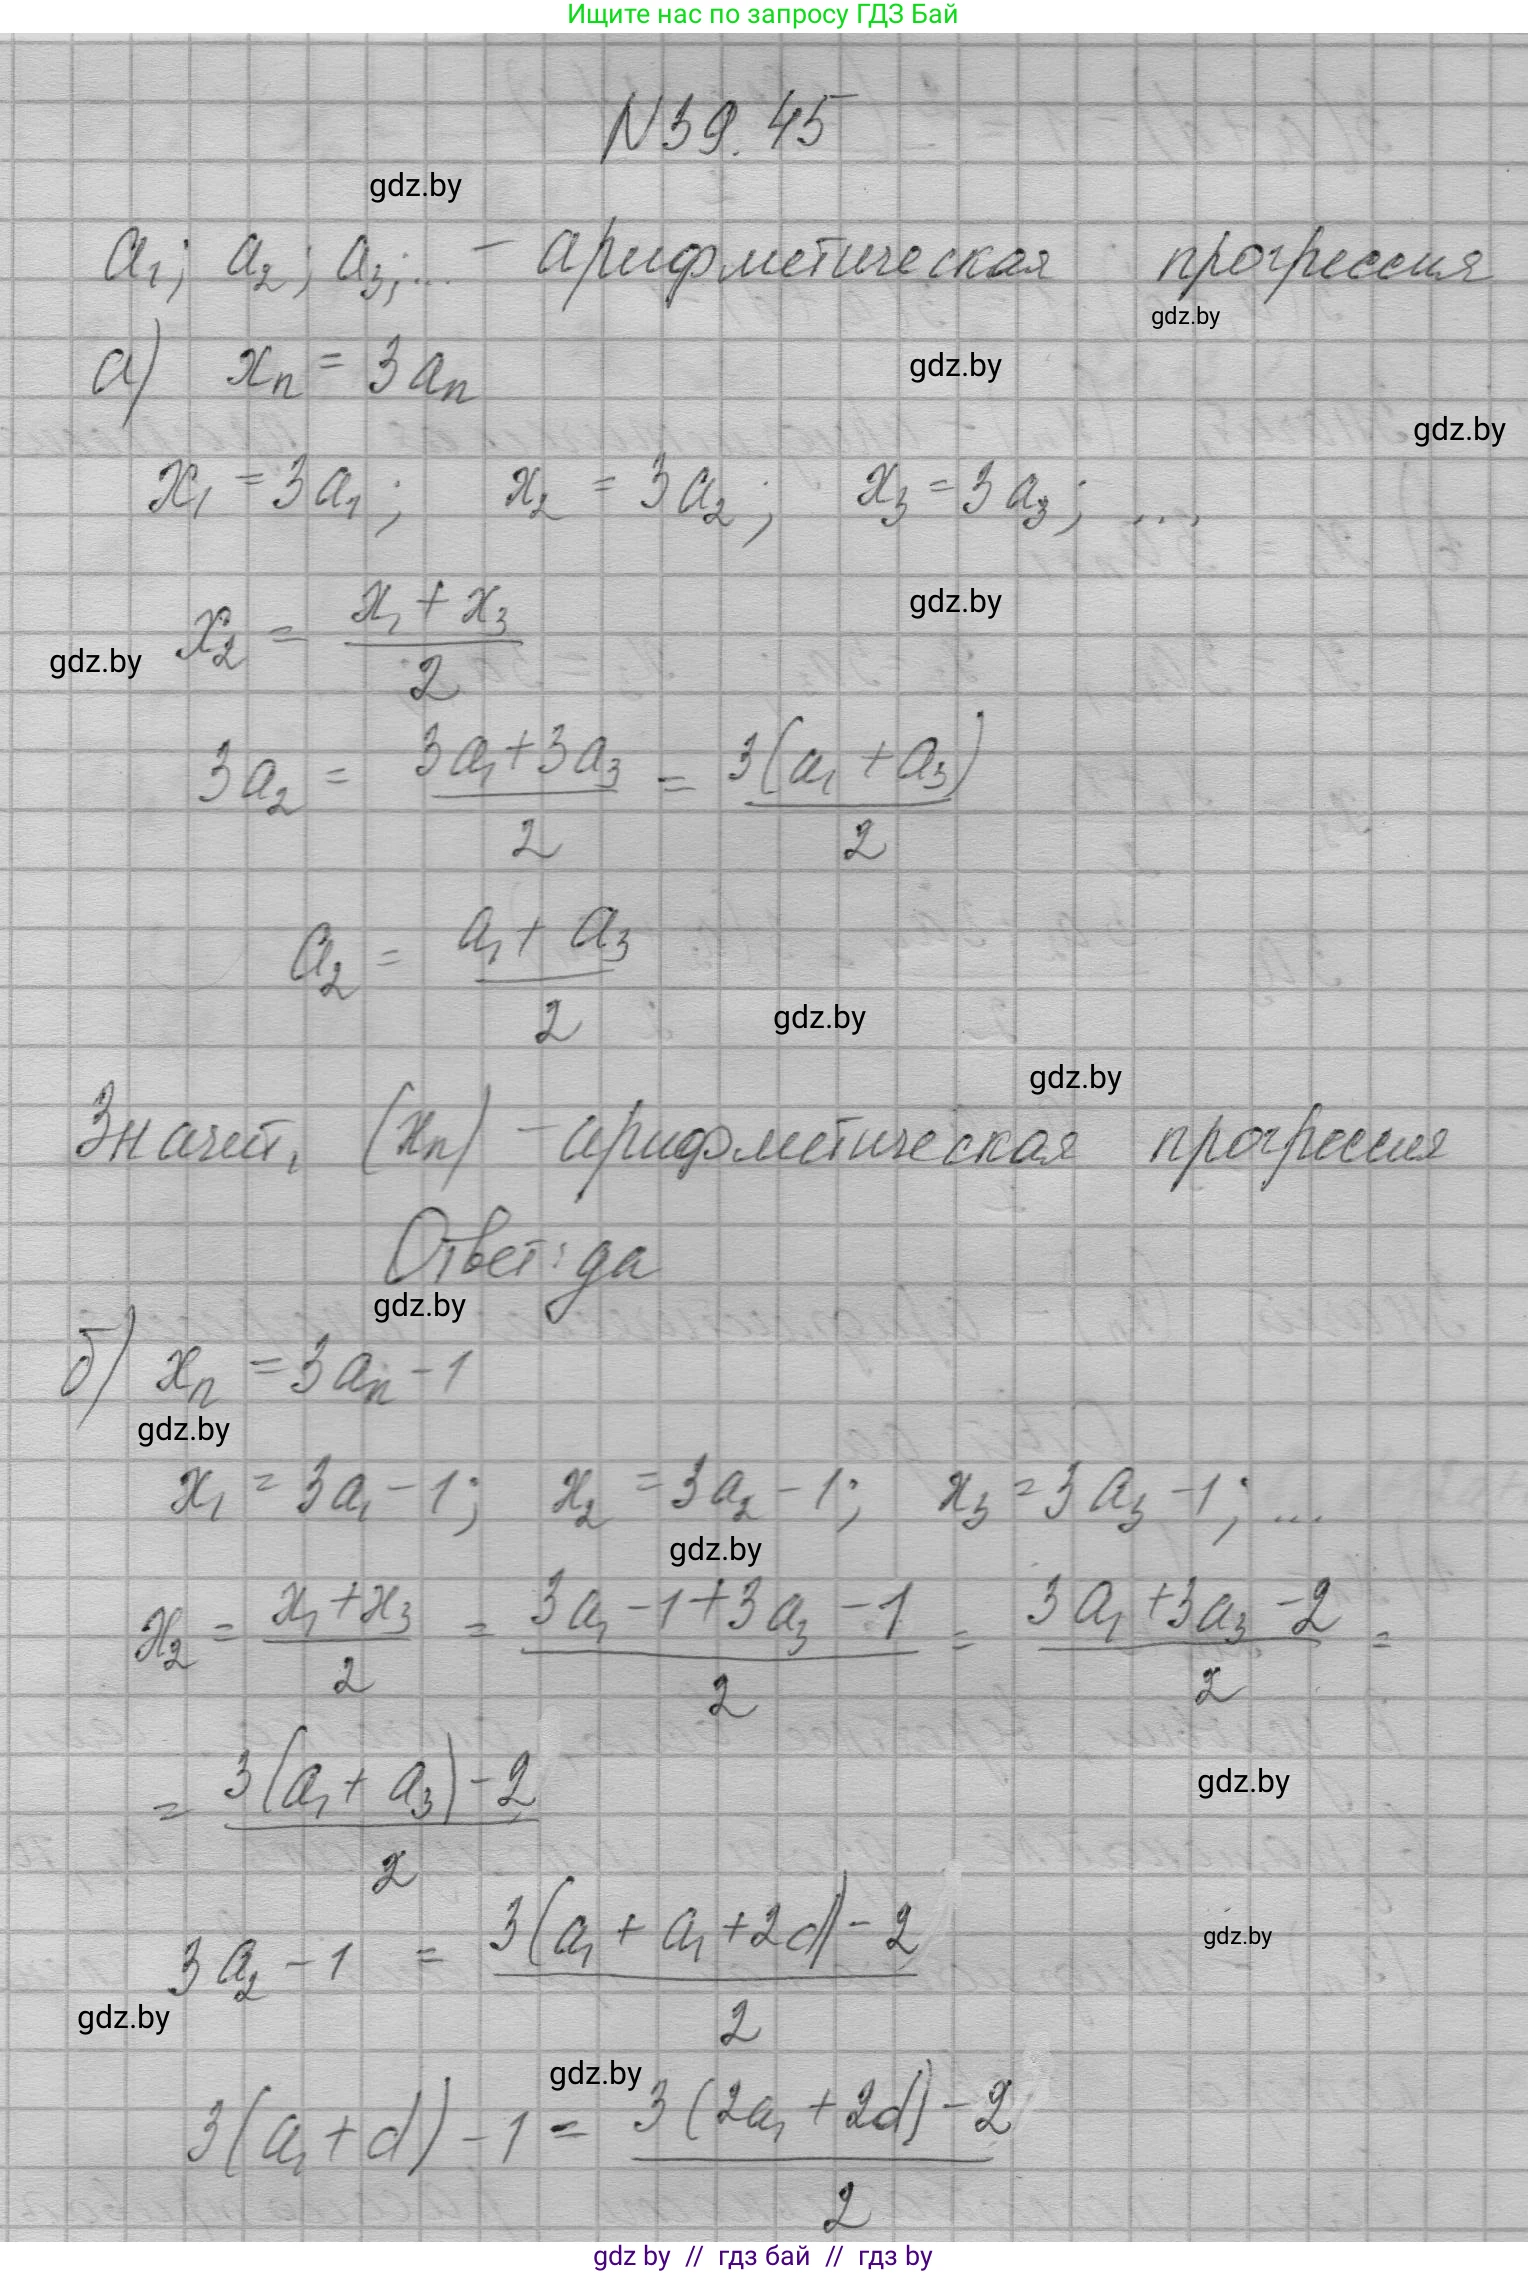 Ищите нас по запросу ГДЗ Бай
N39.45
gdz.by
a₁; a₂; a₃;... - арифметическая прогрессия
gdz.by
gdz.by
а) xₙ = 3aₙ
gdz.by
x₁ = 3a₁; x₂ = 3a₂; x₃ = 3a₃; ...
gdz.by
x₂ = (x₁ + x₃)/2
gdz.by
3a₂ = (3a₁+3a₃)/2 = 3(a₁ + a₃)/2
a₂ = (a₁ + a₃)/2
gdz.by
gdz.by
Значит, (xₙ) - арифметическая прогрессия
Ответ: да
gdz.by
б) xₙ = 3aₙ - 1
gdz.by
x₁ = 3a₁ - 1; x₂ = 3a₂ - 1; x₃ = 3a₃ - 1; ...
gdz.by
x₂ = (x₁ + x₃)/2 = (3a₁ - 1 + 3a₃ - 1)/2 = (3a₁ + 3a₃ - 2)/2 =
= (3(a₁ + a₃) - 2)/2
gdz.by
3a₂ - 1 = (3(a₁ + a₁ + 2d) - 2)/2
gdz.by
gdz.by
gdz.by
3(a₁ + d) - 1 = (3(2a₁ + 2d) - 2)/2
gdz by // гдз бай // гдз by